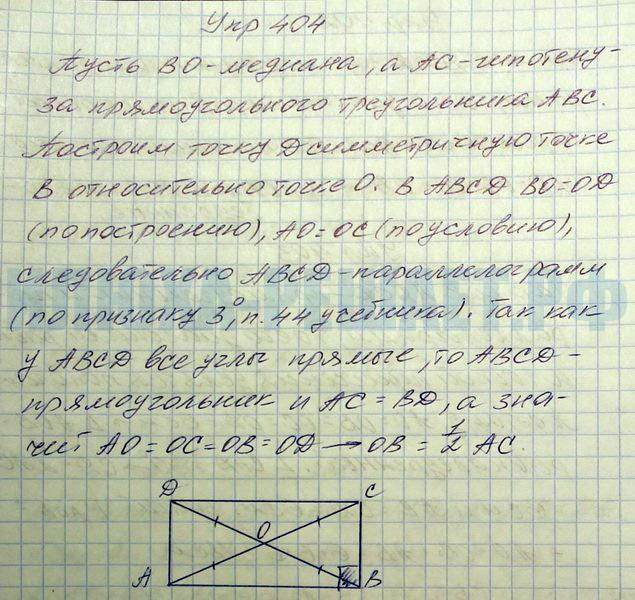 Упр 404
Пусть BO-медиана, а AC-гипотену-
за прямоугольного треугольника ABC.
Построим точку D симметричную точке
B относительно точке O. В ABCD BO=OD
(по построению), AO=OC (по условию),
следовательно ABCD-параллелограмм
(по признаку 3°, п. 44 учебника). Так как
у ABCD все углы прямые, то ABCD-
прямоугольник и AC=BD, а зна-
чит AO=OC=OB=OD → OB = 1/2 AC.
D C
O
A B